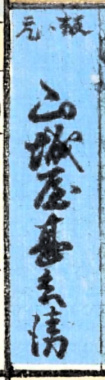 元板
山城屋甚兵衛